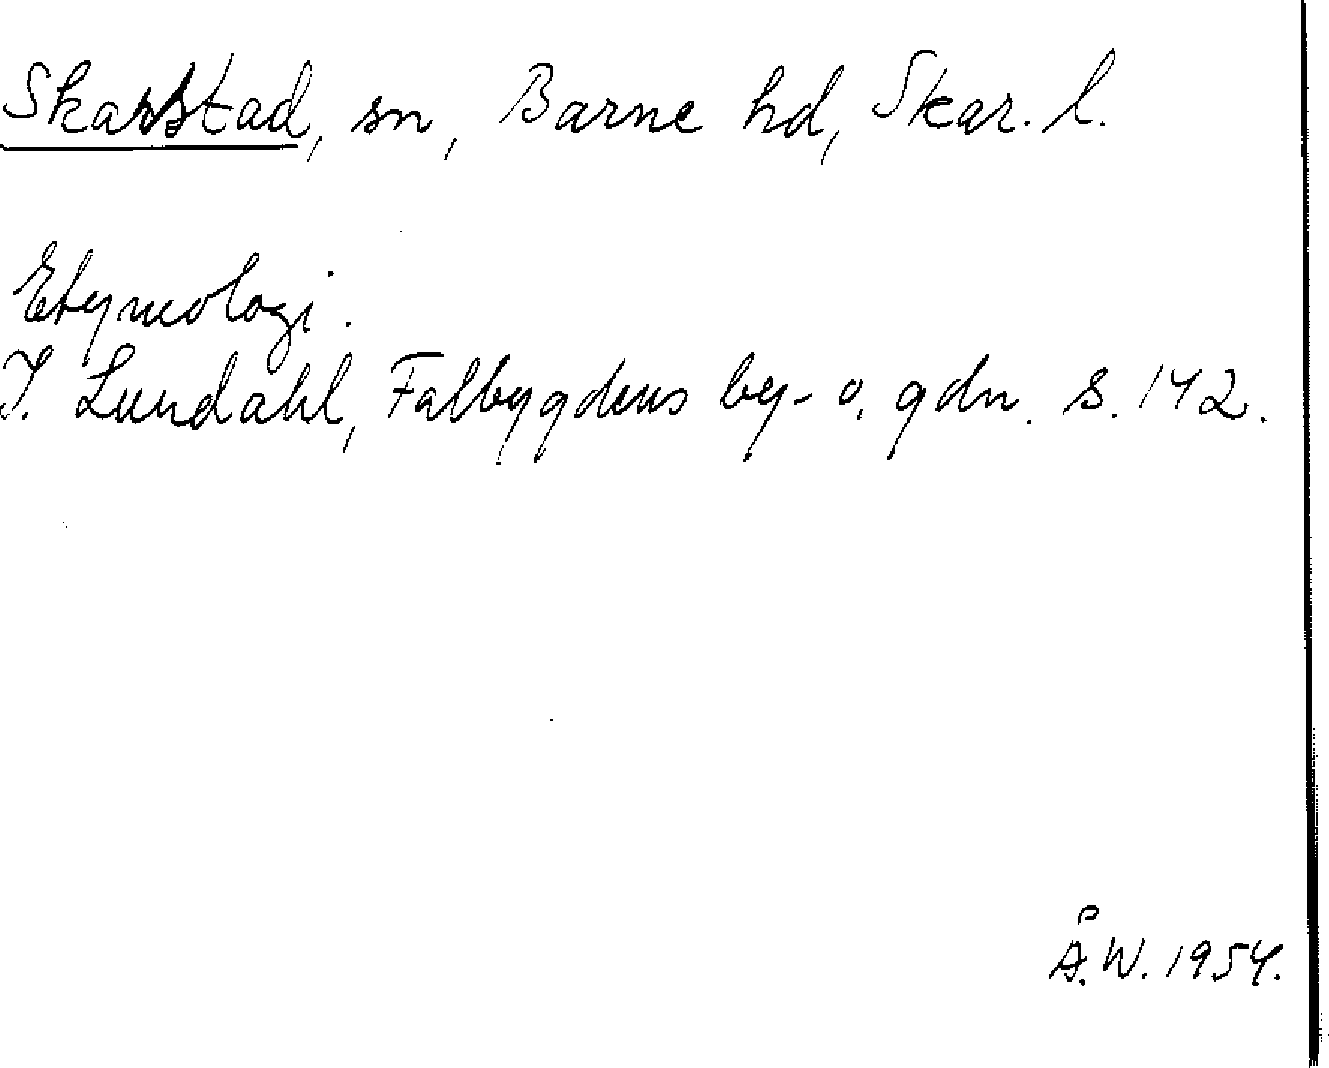 Skarstad, sn, Barne hd, Skar. l.
Etymologi.
I. Lundahl, Falbygdens by- o. gdn. s. 142.
Å.W. 1954.